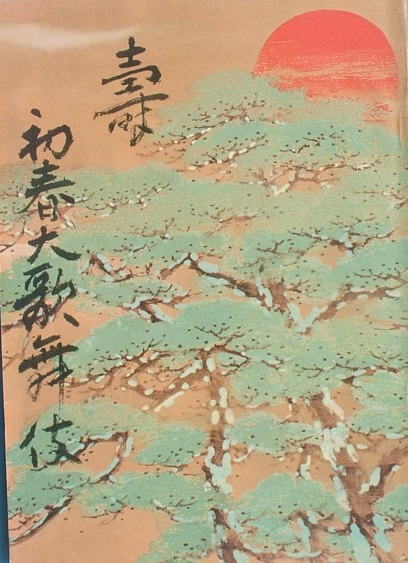 壽
初春大歌舞伎